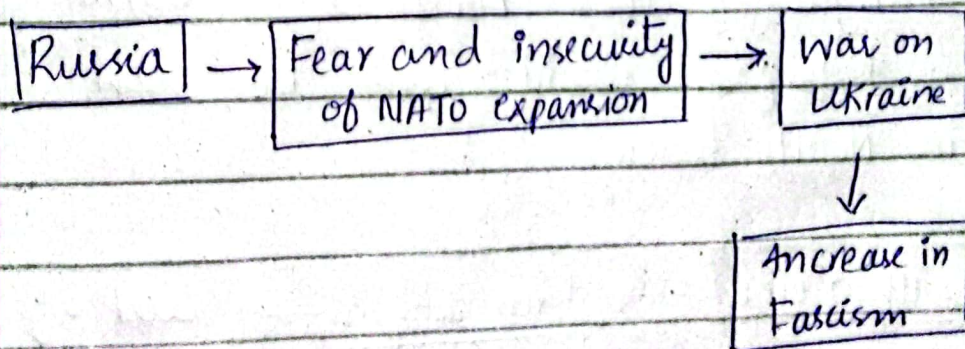 Russia → Fear and insecurity → War on
of NATO expansion Ukraine
↓
Increase in
Fascism